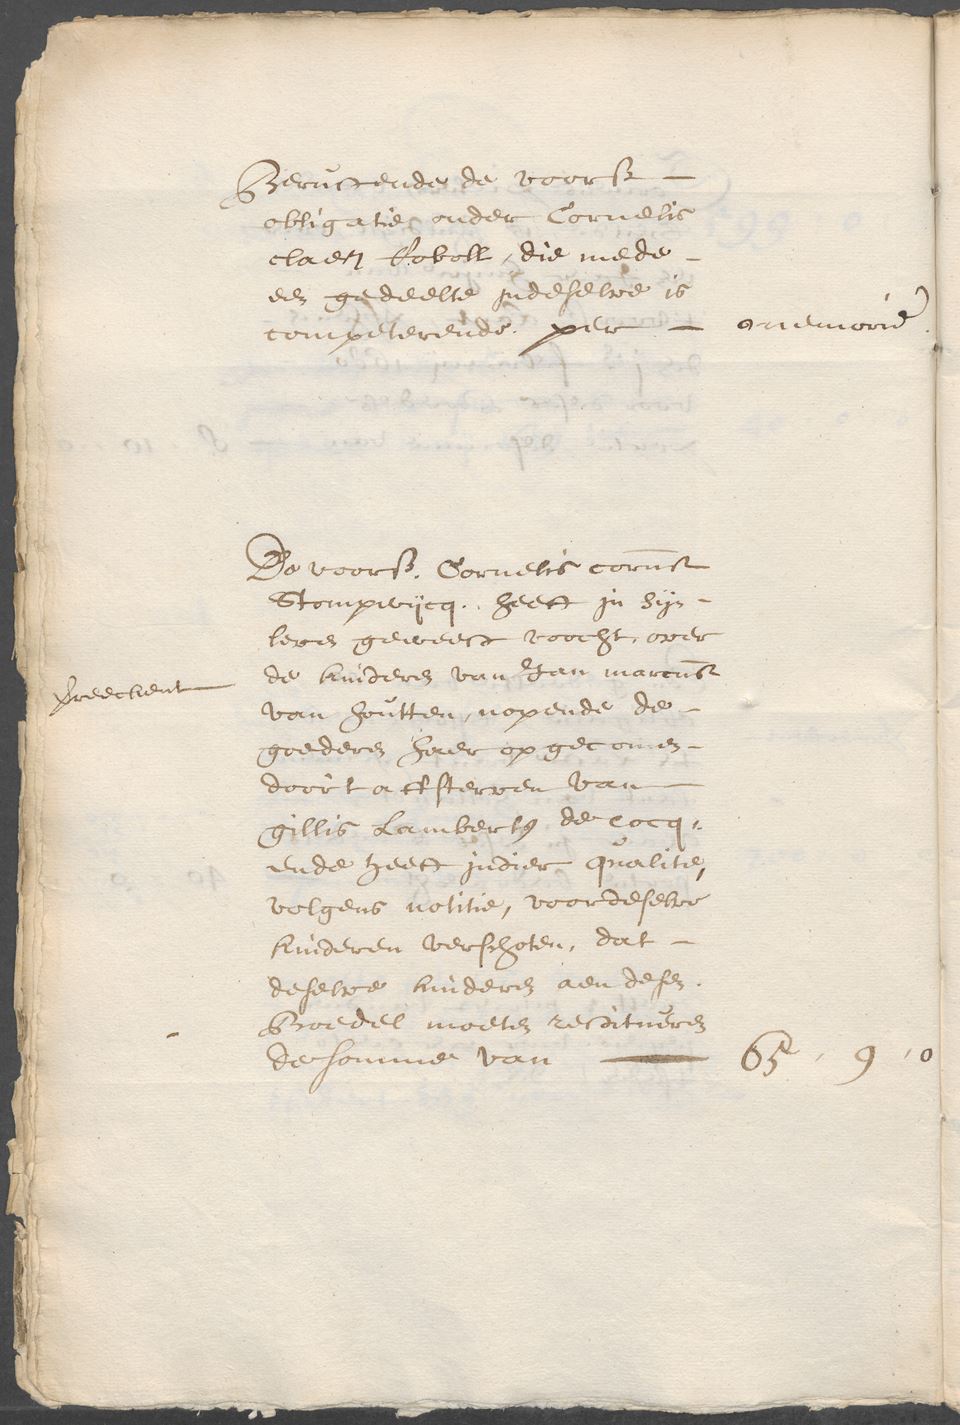 Berustende de voorsz
obligatie onder Cornelis
claesz Kovoll, die mede
een gedeelte indeselve is
competerende. per memorie.
De voorsz. Cornelis cornsz
Stompwijcq. heeft in zijn
leven geweest voocht over
de kinderen van Jan marcusz
van houtten, nopende de
goederen haer opgecomen
doort affsterven van
gillis Lambertsz de cocq,
ende heeft indier qualite,
volgens notitie, voordeselve
kinderen verschoten, dat
deselve kinderen aen desen
Boedel moeten restitueren
de somme van 65 , 9 , 0